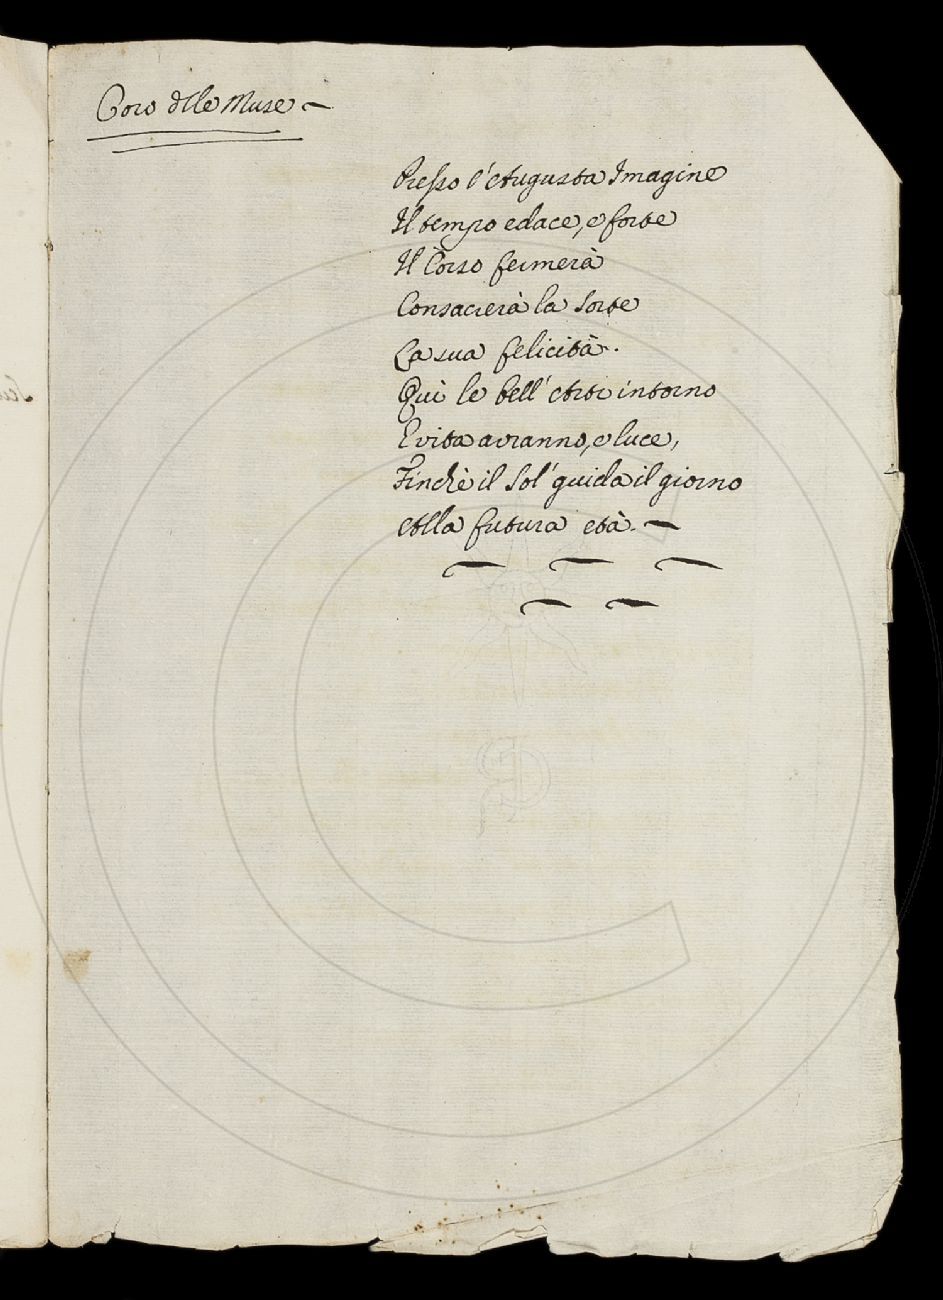 Coro dlle Muse
Presso l'Augusta Imagine
Il tempo edace, e forte
Il Corso fermerà
Consacrerà la Sorte
La sua felicità.
Quì le bell'Arti intorno
E vita avranno, e luce,
Finchè il Sol' guida il giorno
Alla futura età.